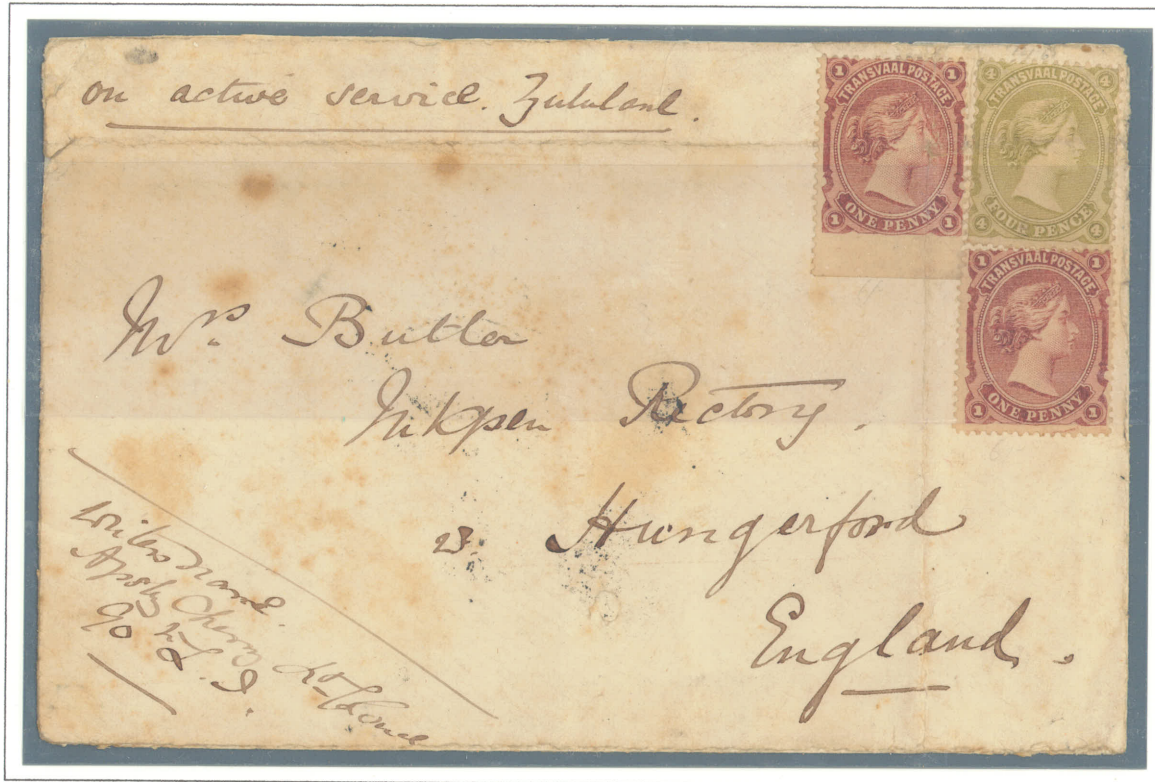 on active service. Zululand.
1 TRANSVAAL POSTAGE 1
1 ONE PENNY 1
4 TRANSVAAL POSTAGE 4
4 FOUR PENCE 4
1 TRANSVAAL POSTAGE 1
1 ONE PENNY 1
Mrs. Butler
Inkpen Rectory.
Hungerford
England.
writers name.
90